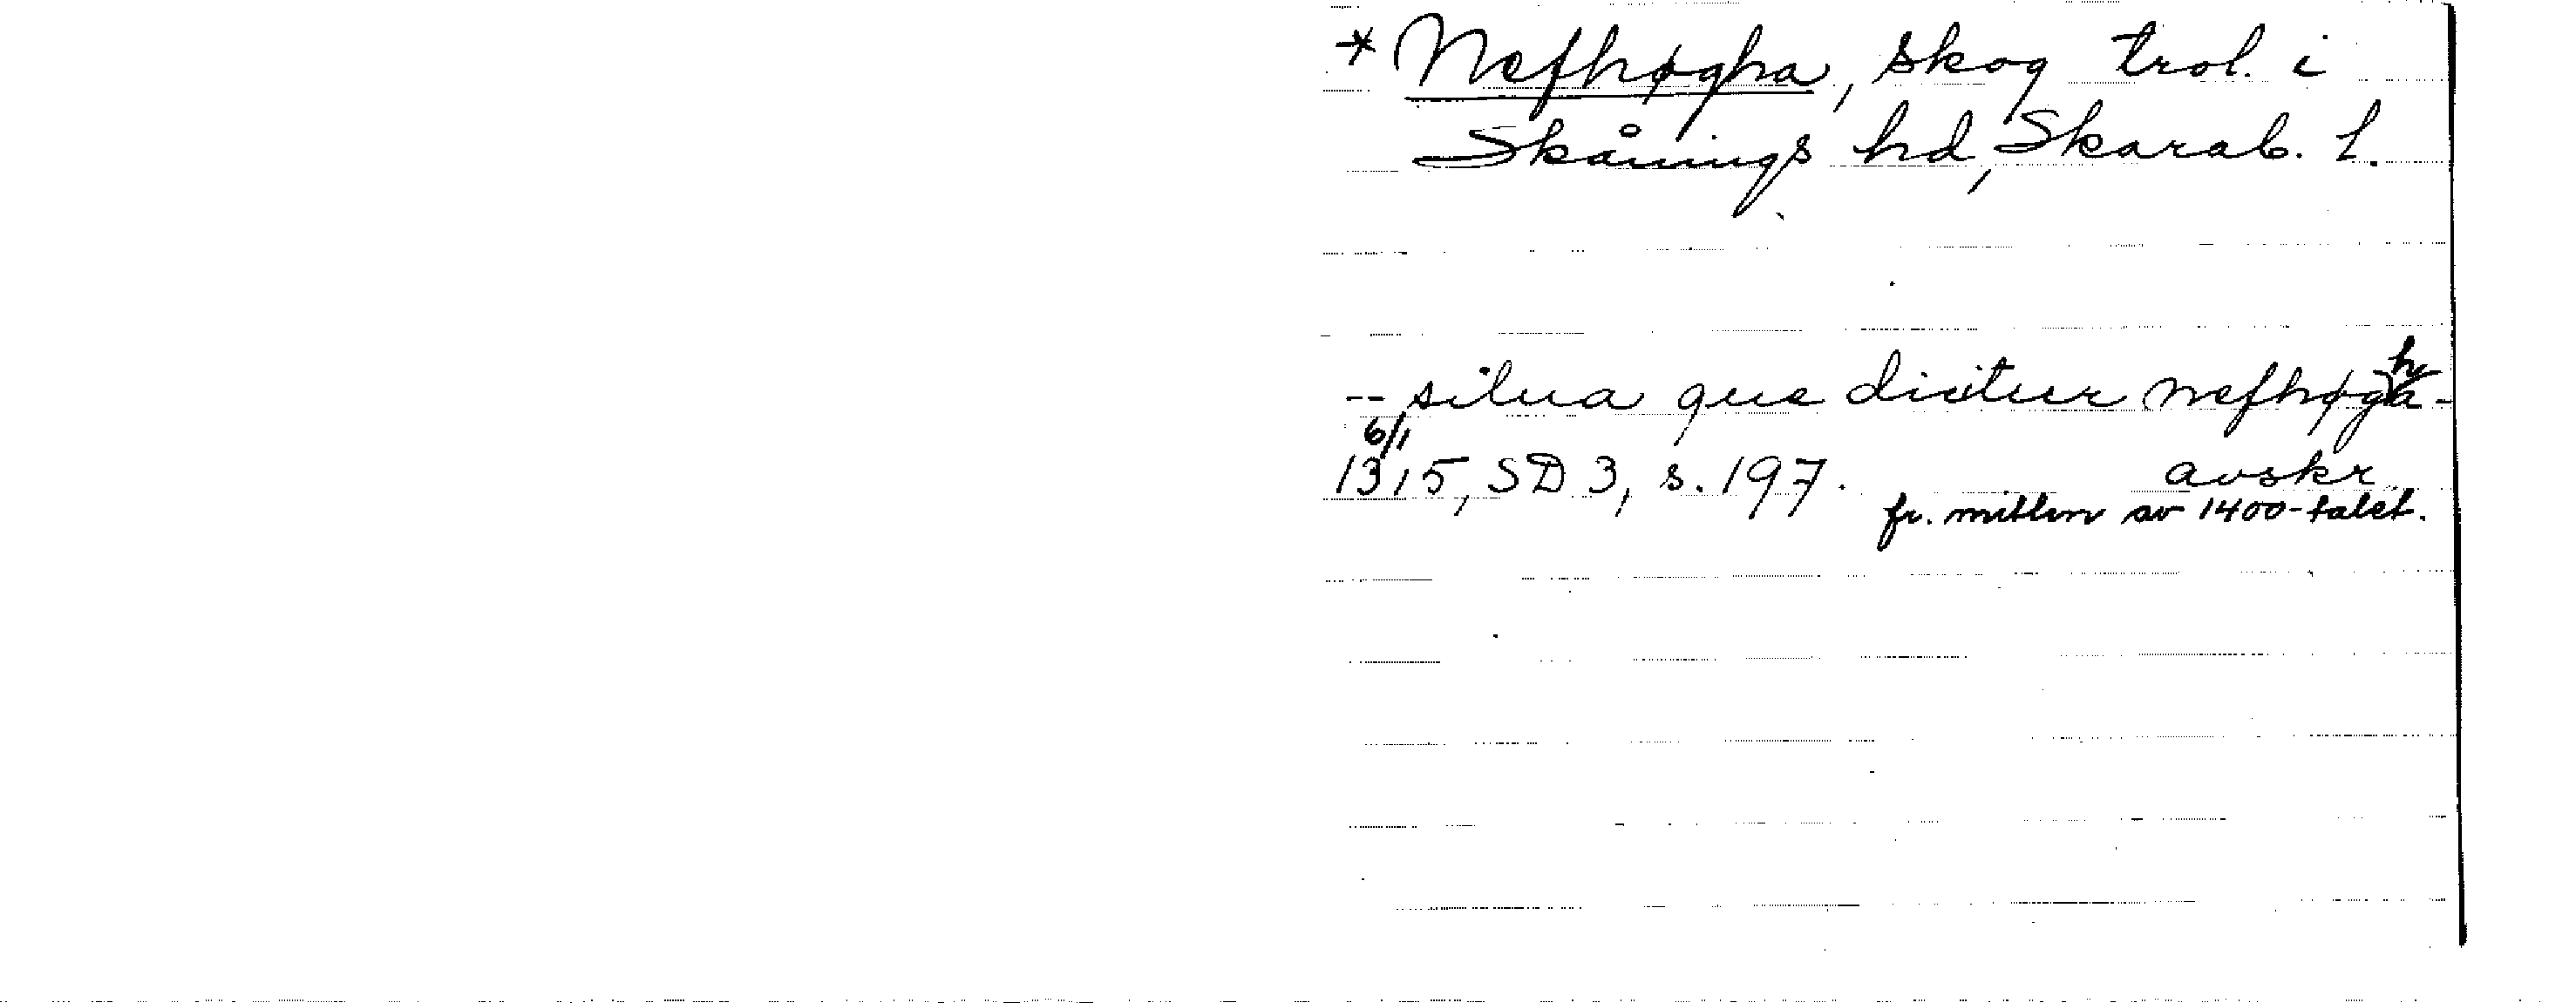 * Nefhøgha, skog trol. i
Skånings hd, Skarab. l.
-- silua que dicitur nefhøgha -
6/1
1315, SD 3, s. 197. avskr.
fr. mitten av 1400-talet.